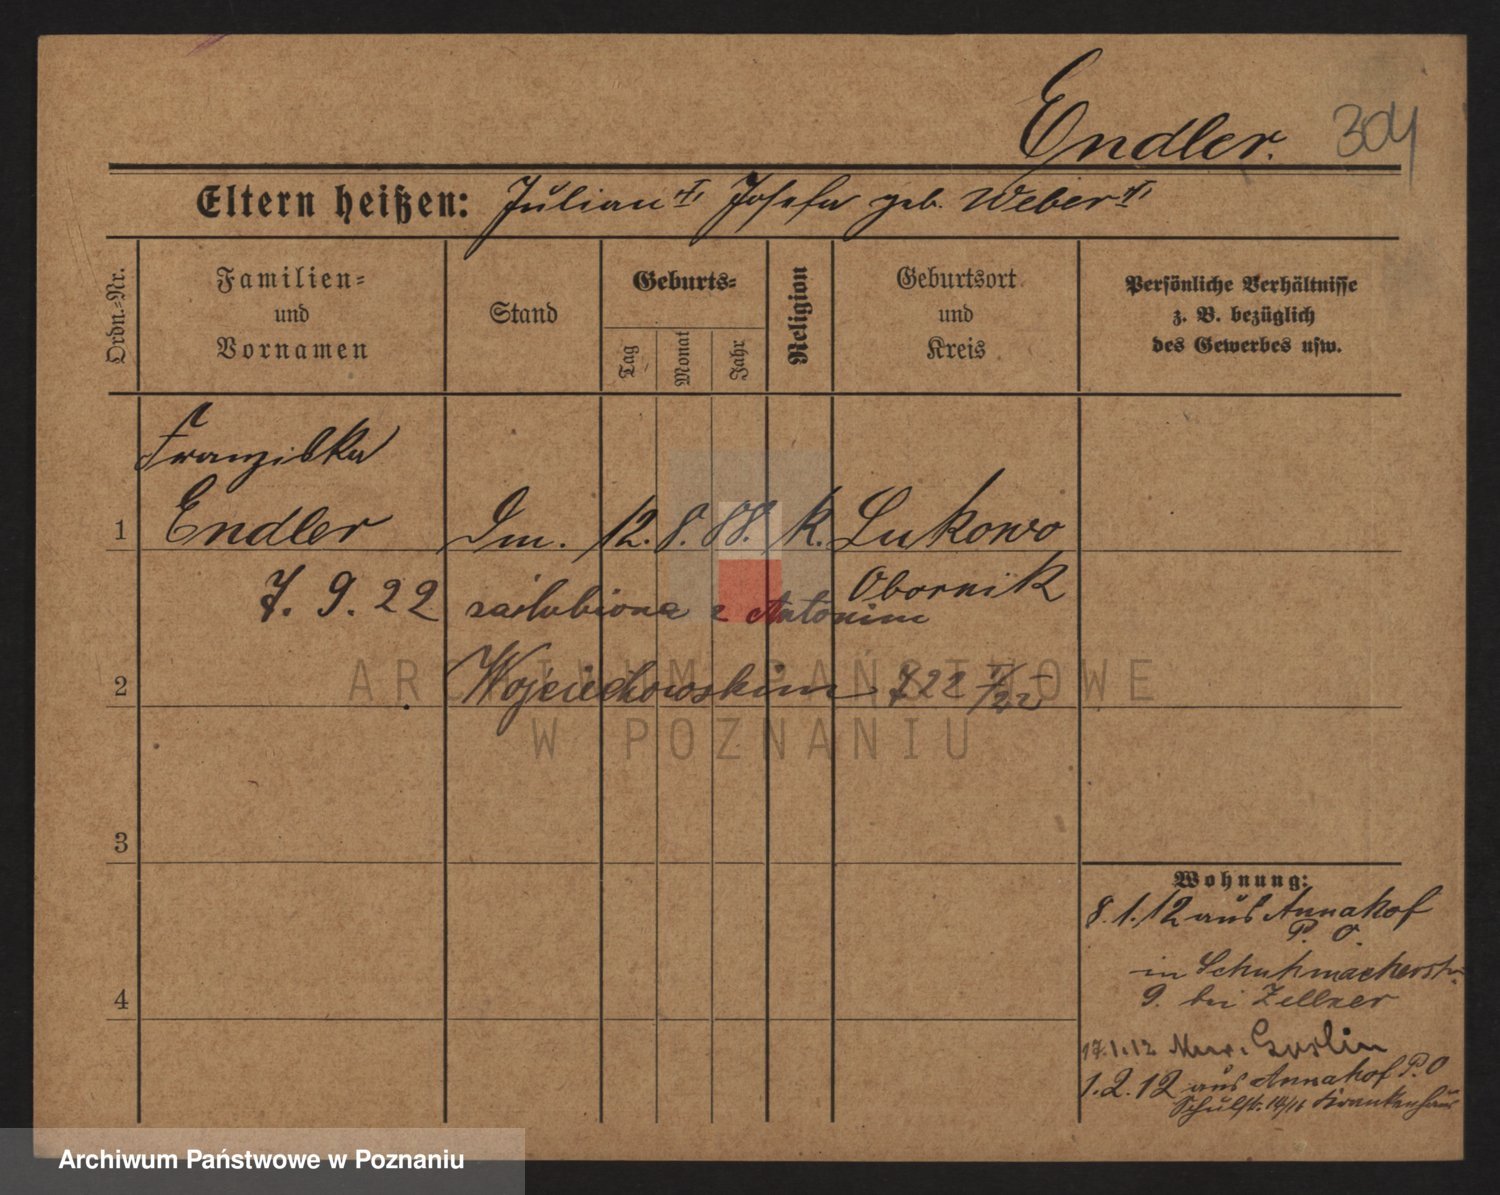 Endler. 304
Eltern heißen: Julian †, Josefa geb. Weber †,
Ordn.-Nr.
Familien-
und
Vornamen
Stand
Geburts-
Tag
Monat
Jahr
Religion
Geburtsort
und
Kreis
Persönliche Verhältnisse
z. B. bezüglich
des Gewerbes usw.
Franziska
1 Endler Dm. 12. 8. 88. k. Lukowo
Obornik
7. 9. 22 zaślubiona z Antonim
2 Wojciechowskim 722
3
4
Wohnung:
8.1.12 aus Annahof
P. O.
in Schuhmacherstr.
9. bei Zellner
17.1.12 Mur. Goslin
1.2.12 aus Annahof P.O
Schulstr. 14/16 Krankenhaus
ARCHIWUM PAŃSTWOWE
W POZNANIU
Archiwum Państwowe w Poznaniu